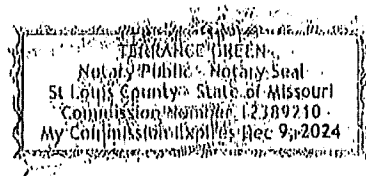 TERRANCE GREEN
Notary Public - Notary Seal
St Louis County - State of Missouri
Commission Number 12389210
My Commission Expires Dec 9, 2024